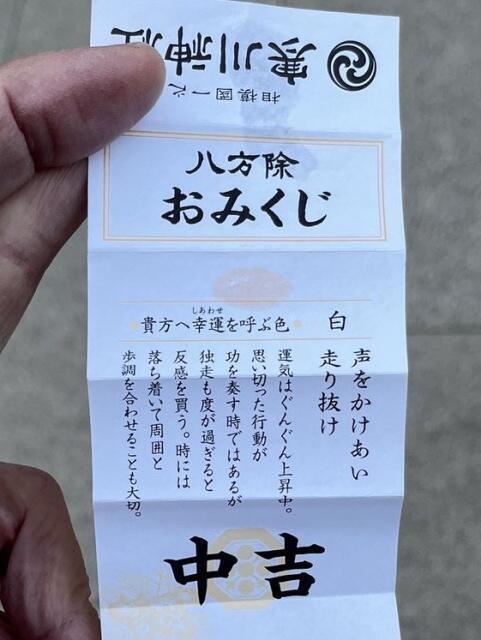 寒川神社
相模國一之
八方除
おみくじ
貴方へ幸運を呼ぶ色
しあわせ
白
声をかけあい
走り抜け
運気はぐんぐん上昇中。
思い切った行動が
功を奏す時ではあるが
独走も度が過ぎると
反感を買う。時には
落ち着いて周囲と
歩調を合わせることも大切。
中吉